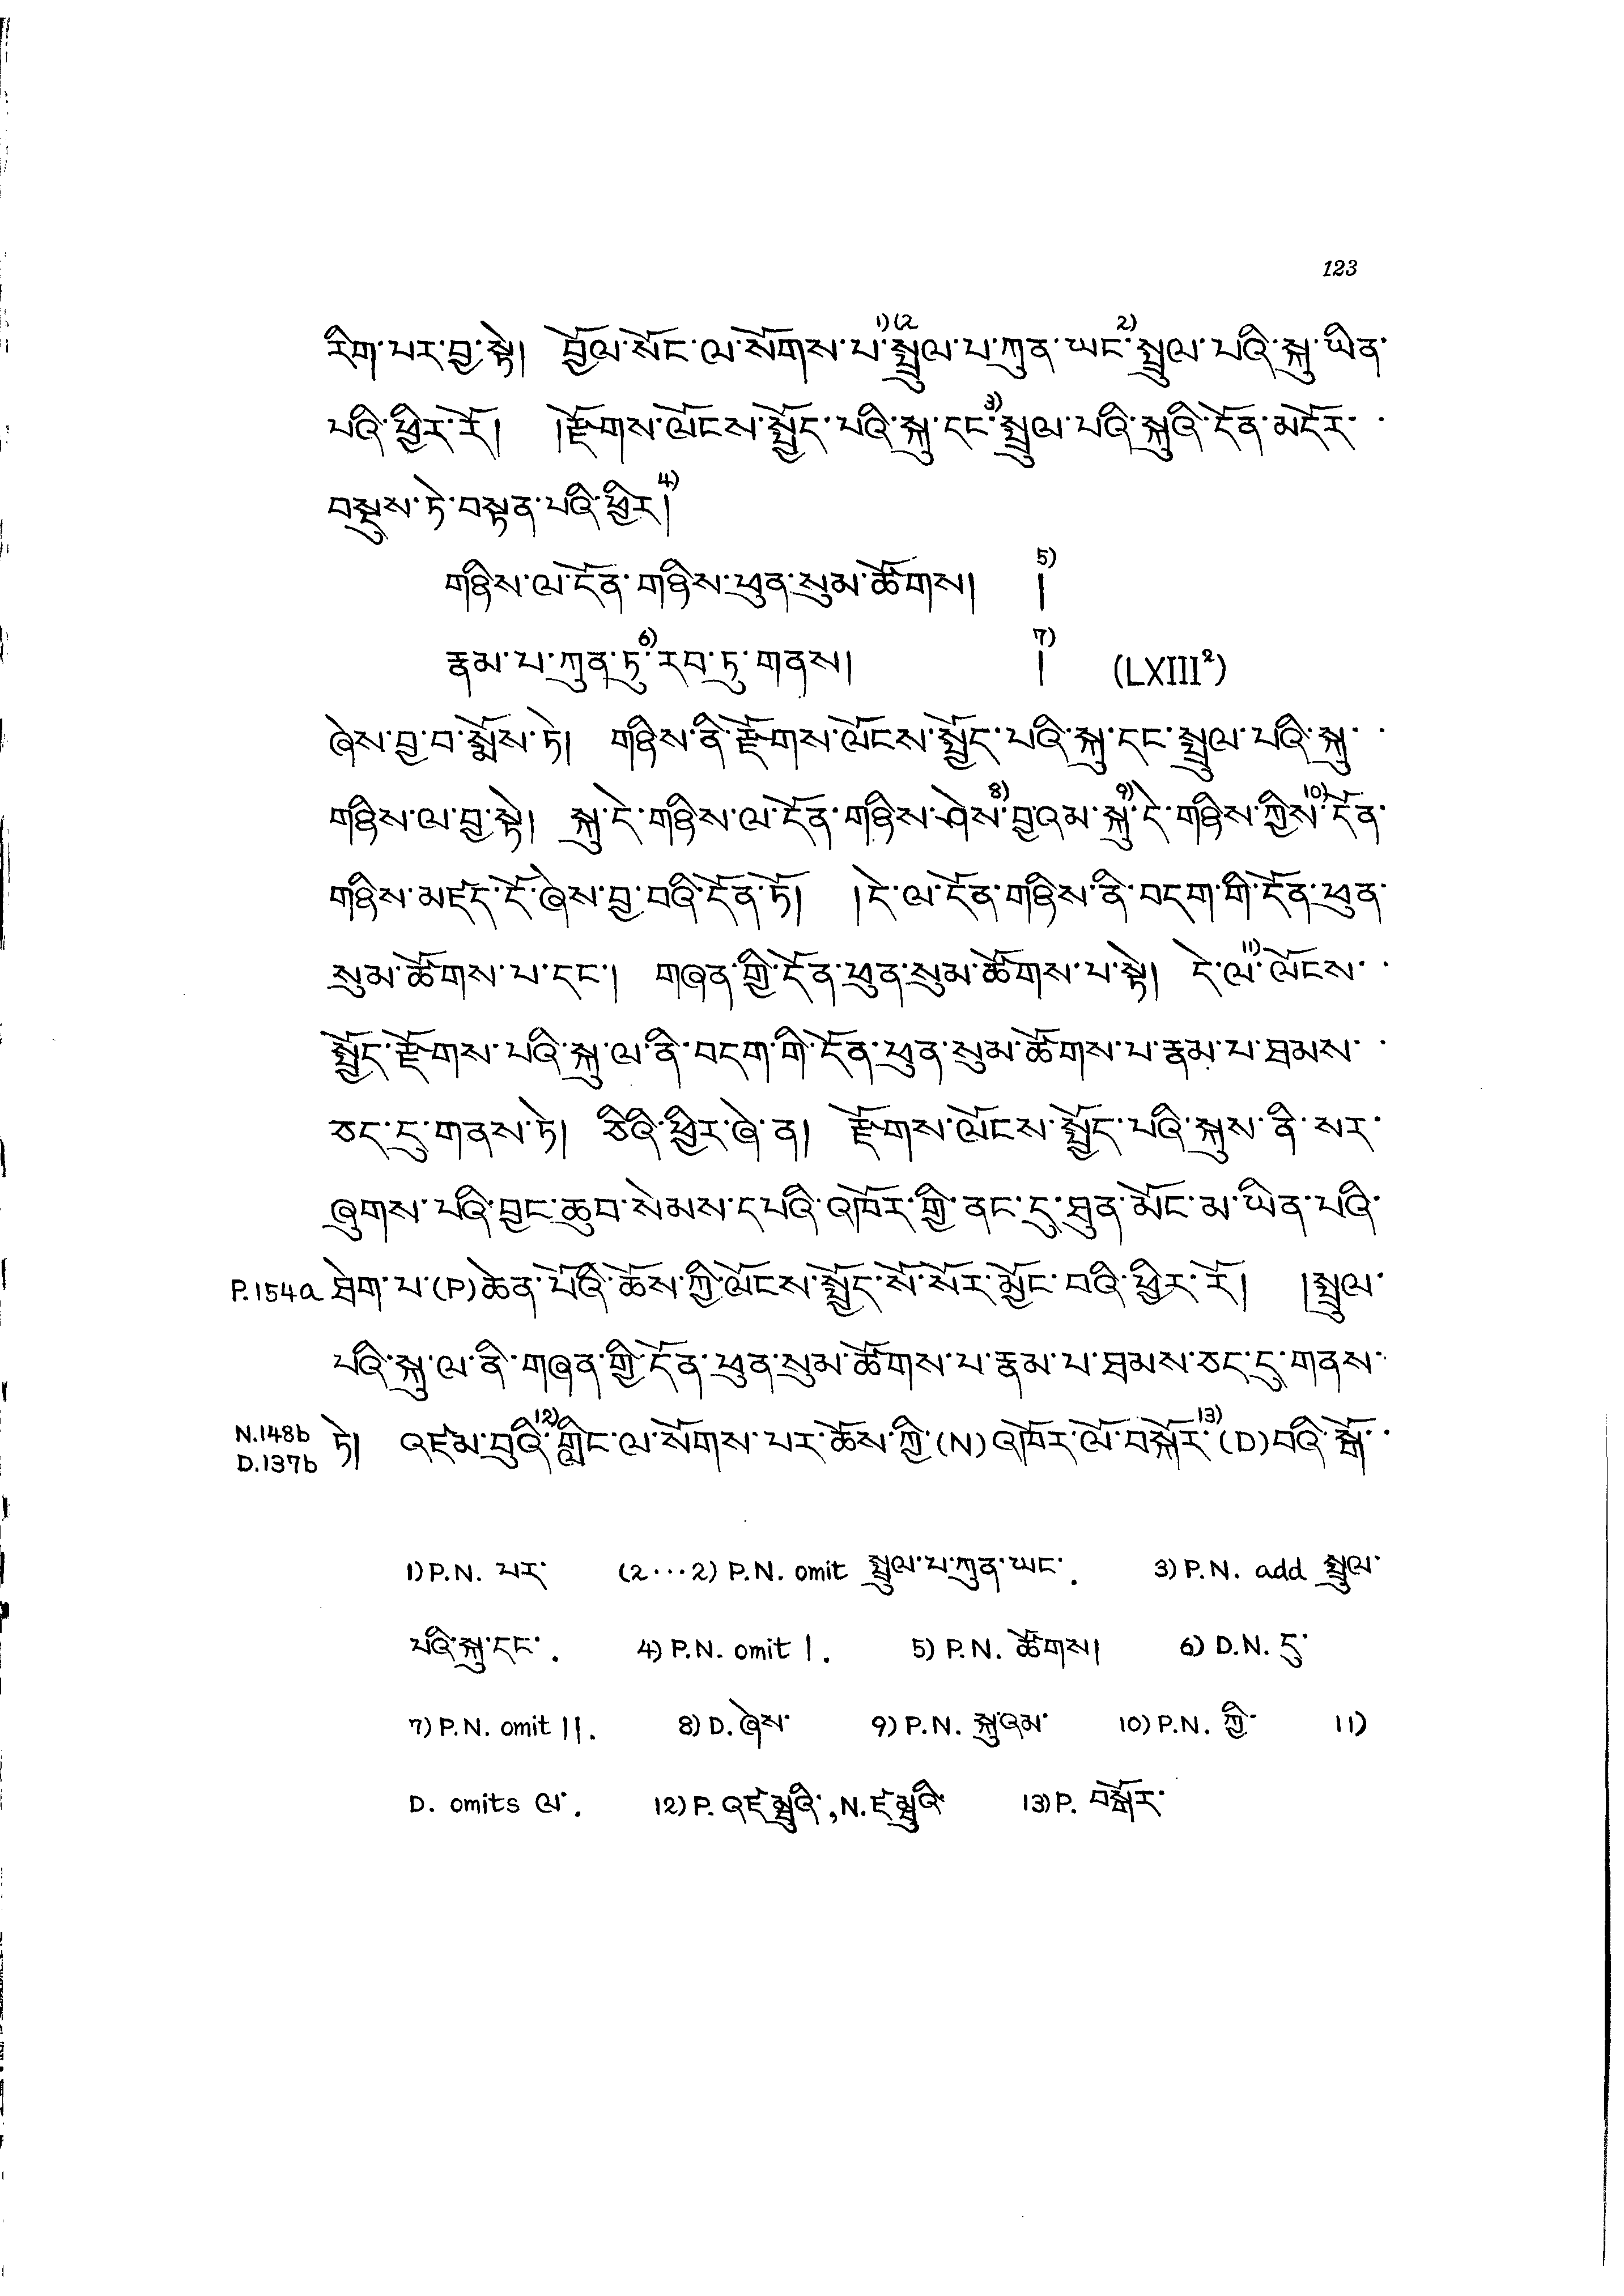 123
རིག་པར་བྱ་སྟེ། བྱོལ་སོང་ལ་སོགས་པ་1)(2སྤྲུལ་པ་ཀུན་ཡང་2)སྤྲུལ་པའི་སྐུ་ཡིན་
པའི་ཕྱིར་རོ། །རྫོགས་ལོངས་སྤྱོད་པའི་སྐུ་དང་3)སྤྲུལ་པའི་སྐུའི་དོན་མདོར་
བསྡུས་ཏེ་བསྟན་པའི་ཕྱིར།4)
གཉིས་ལ་དོན་གཉིས་ཕུན་སུམ་ཚོགས། །5)
རྣམ་པ་ཀུན་ཏུ་6)རབ་ཏུ་གནས། །7) (LXIII²)
ཞེས་བྱ་བ་སྨོས་ཏེ། གཉིས་ནི་རྫོགས་ལོངས་སྤྱོད་པའི་སྐུ་དང་སྤྲུལ་པའི་སྐུ་
གཉིས་ལ་བྱ་སྟེ། སྐུ་དེ་གཉིས་ལ་དོན་གཉིས་ཤེས་8)བྱ་འམ་སྐུ་9)དེ་གཉིས་ཀྱིས་10)དོན་
གཉིས་མཛད་དོ་ཞེས་བྱ་བའི་དོན་ཏོ། །དེ་ལ་དོན་གཉིས་ནི་བདག་གི་དོན་ཕུན་
སུམ་ཚོགས་པ་དང་། གཞན་གྱི་དོན་ཕུན་སུམ་ཚོགས་པ་སྟེ། དེ་ལ་11)ལོངས་
སྤྱོད་རྫོགས་པའི་སྐུ་ལ་ནི་བདག་གི་དོན་ཕུན་སུམ་ཚོགས་པ་རྣམ་པ་ཐམས་
ཅད་དུ་གནས་ཏེ། ཅིའི་ཕྱིར་ཞེ་ན། རྫོགས་ལོངས་སྤྱོད་པའི་སྐུས་ནི་སར་
ཞུགས་པའི་བྱང་ཆུབ་སེམས་དཔའི་འཁོར་གྱི་ནང་དུ་ཐུན་མོང་མ་ཡིན་པའི་
P.154a ཐེག་པ་(P)ཆེན་པོའི་ཆོས་ཀྱི་ལོངས་སྤྱོད་སོ་སོར་མྱོང་བའི་ཕྱིར་རོ། །སྤྲུལ་
པའི་སྐུ་ལ་ནི་གཞན་གྱི་དོན་ཕུན་སུམ་ཚོགས་པ་རྣམ་པ་ཐམས་ཅད་དུ་གནས་
N.148b D.137b ཏེ། འཛམ་བུའི་12)གླིང་ལ་སོགས་པར་ཆོས་ཀྱི་(N)འཁོར་ལོ་བསྐོར་13)(D)བའི་སྒོ་
1) P.N. པར་ (2...2) P.N. omit སྤྲུལ་པ་ཀུན་ཡང་. 3) P.N. add སྤྲུལ་
པའི་སྐུ་དང་. 4) P.N. omit །. 5) P.N. ཚོགས། 6) D.N. དུ་
7) P.N. omit །།. 8) D. ཞེས་ 9) P.N. སྐུ་འམ་ 10) P.N. ཀྱི་ 11)
D. omits ལ་. 12) P. འཛམྦུའི་, N. ཛམྦུའི་ 13) P. བསྒོར་